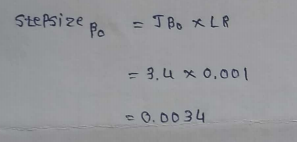 Stepsize β₀ = Jβ₀ × LR
= 3.4 × 0.001
= 0.0034